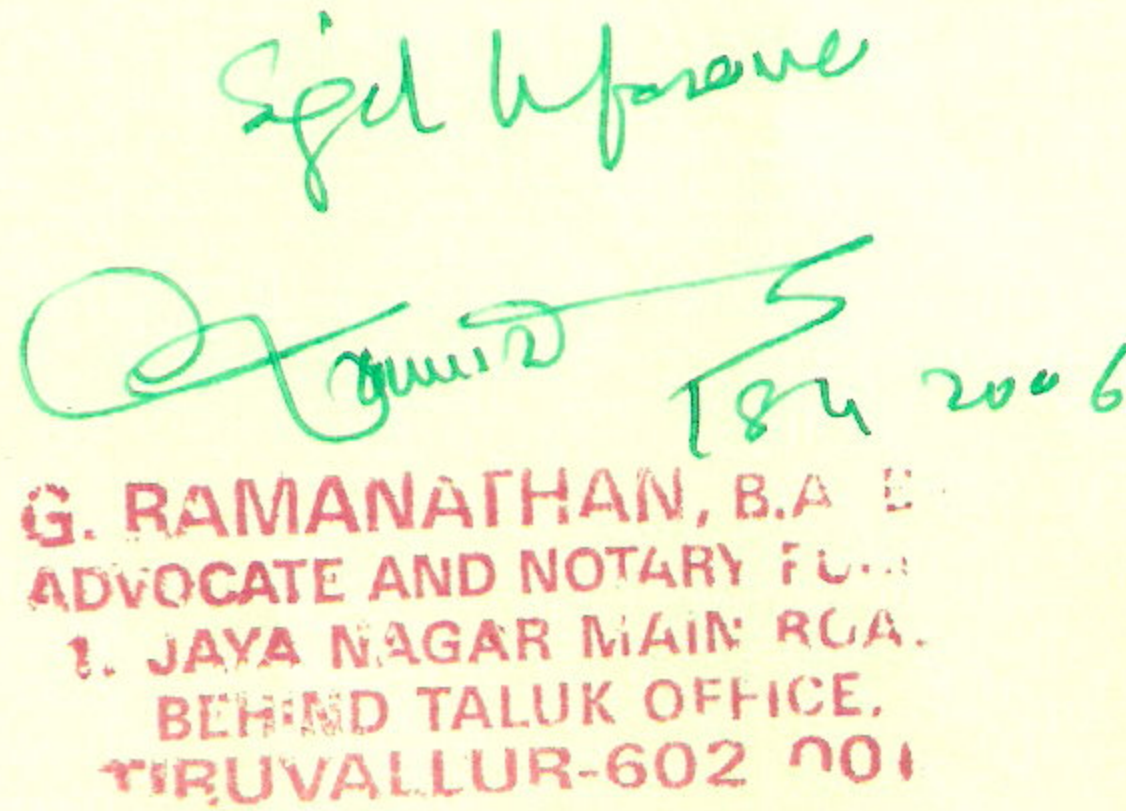 Sigd before me
2006
G. RAMANATHAN, B.A
ADVOCATE AND NOTARY
1. JAYA NAGAR MAIN
BEHIND TALUK OFFICE.
TIRUVALLUR-602 001